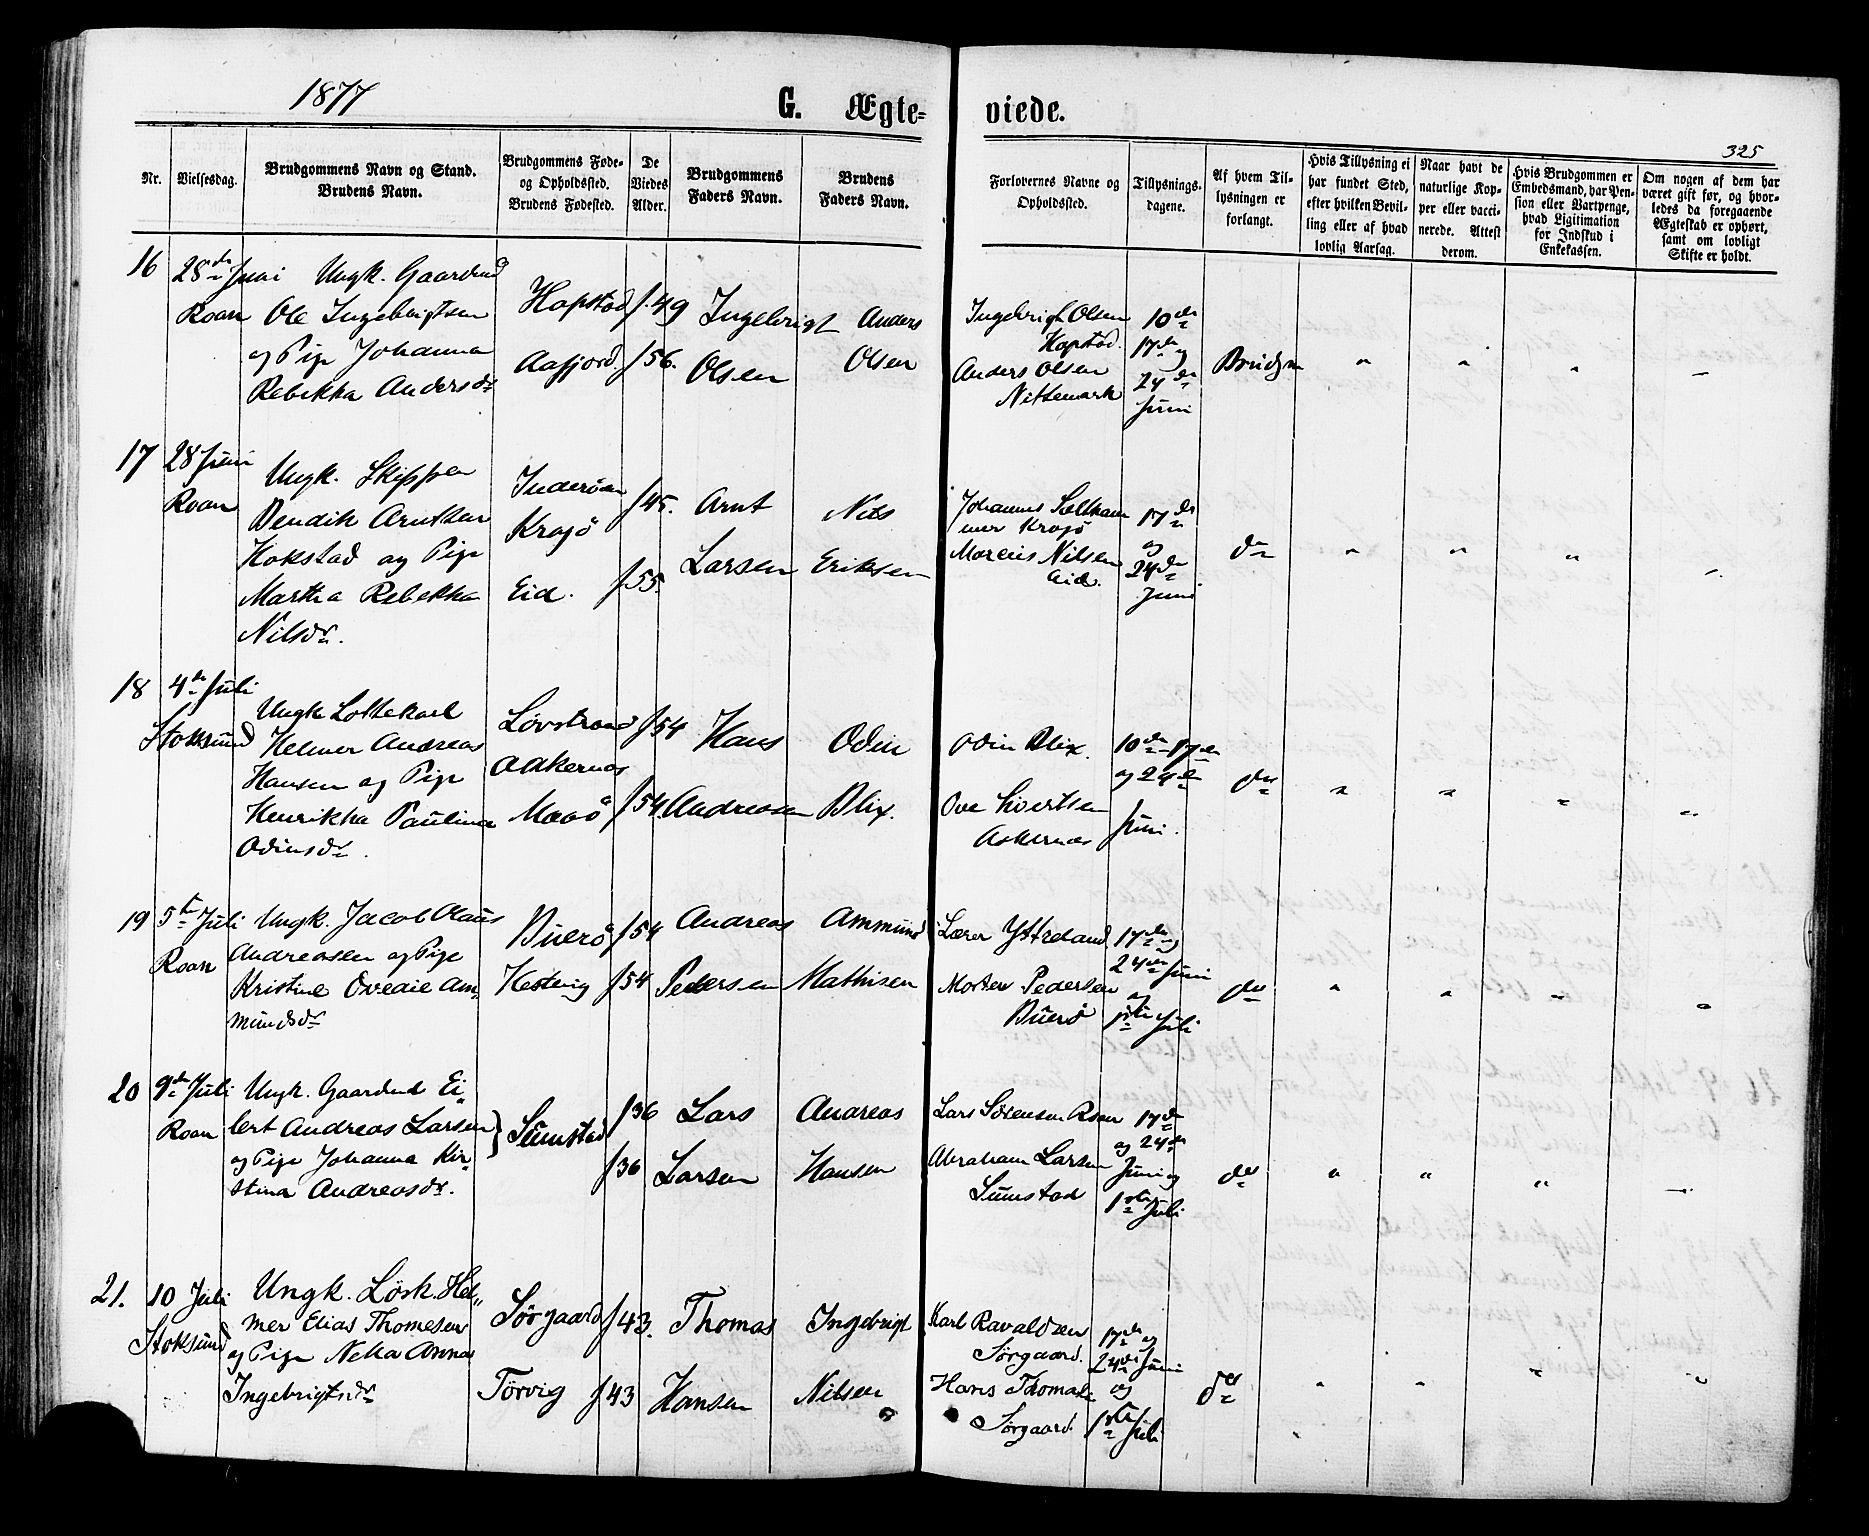 1877
G. Ægte-
viede.
325
Nr.
Vielsesdag.
Brudgommens Navn og Stand.
Brudens Navn.
Brudgommens Føde-
og Opholdssted.
Brudens Fødested.
De
Viedes
Alder.
Brudgommens
Faders Navn.
Brudens
Faders Navn.
Forlovernes Navne og
Opholdssted.
Tillysnings-
dagene.
Af hvem Til-
lysningen er
forlangt.
Hvis Tillysning ei
har fundet Sted,
efter hvilken Bevil-
ling eller af hvad
lovlig Aarsag.
Naar havt de
naturlige Kop-
per eller vacci-
nerede. Attest
derom.
Hvis Brudgommen er
Embedsmand, har Pen-
sion eller Vartpenge,
hvad Ligitimation
for Indskud i
Enkekassen.
Om nogen af dem har
været gift før, og hvor-
ledes da foregaaende
Ægteskab er ophørt,
samt om lovligt
Skifte er holdt.
16
28de Juni
Roan
Ungk. Gaardmd
Ole Ingebrigtsen
og Pige Johanna
Rebekka Andersdr
Hopstad
Aafjord
f. 49
f 56.
Ingebrigt
Olsen
Anders
Olsen
Ingebrigt Olsen
Hopstad.
Anders Olsen
Nittemark
10de
17de og
24de
Juni
Brudgm
" " " –
17
28 Juni
Roan
Ungk. Skipper
Bendik Arntsen
Hokstad og Pige
Martha Rebekka
Nilsdr.
Inderöen
Krajö
Eid.
f 45.
f. 55.
Arnt
Larsen
Nils
Eriksen
Johannes
mer Krajö
Marcus Nilsen
Eid.
17de
og
24de
Juni
do
" " " –
18
4de Juli
Stoksund
Ungk Lottekarl
Helmer Andreas
Hansen og Pige
Henrikka Paulina
Odinsdr.
Lövstrand
Aakernes
Maaö
f 54
f 54.
Hans
Andreasen
Odin
Blix.
Odin Blix.
Ove Sivertsen
Aakernes
10de 17de
og 24de
Juni.
do
" " " "
19
5te Juli
Roan
Ungk. Jacob Olaus
Andreasen og Pige
Kristine Ovedie Am-
mundsdr
Buerö
Hestvig
f 54
f 54
Andreas
Pedersen
Ammund
Mathisen
Lærer Ystreland
Morten Pedersen
Buerö
17de og
24de Juni
og
1ste Juli
do
" " " "
20
9de Juli
Roan
Ungk. Gaardmd Ei-
lert Andreas Larsen
og Pige Johanna Kir-
stina Andreasdr.
Sumstad
f 36
f 36
Lars
Larsen
Andreas
Hansen
Lars Sörensen Roan
Abraham Larsen
Sumstad
17de
og 24de
Juni og
1ste Juli
do
" " " –
21.
10 Juli
Stoksund
Ungk. Lösk. Hel-
mer Elias Thomesen
og Pige Nella Anna
Ingebrigtsdr
Sörgaard
Törvig
f 43.
f 43
Thomas
Hansen
Ingebrigt
Nilsen
Karl Ravaldsen
Sörgaard.
Hans Thomas.
Sörgaard.
17de og
24de Juni
og
1ste Juli
do
" " " "